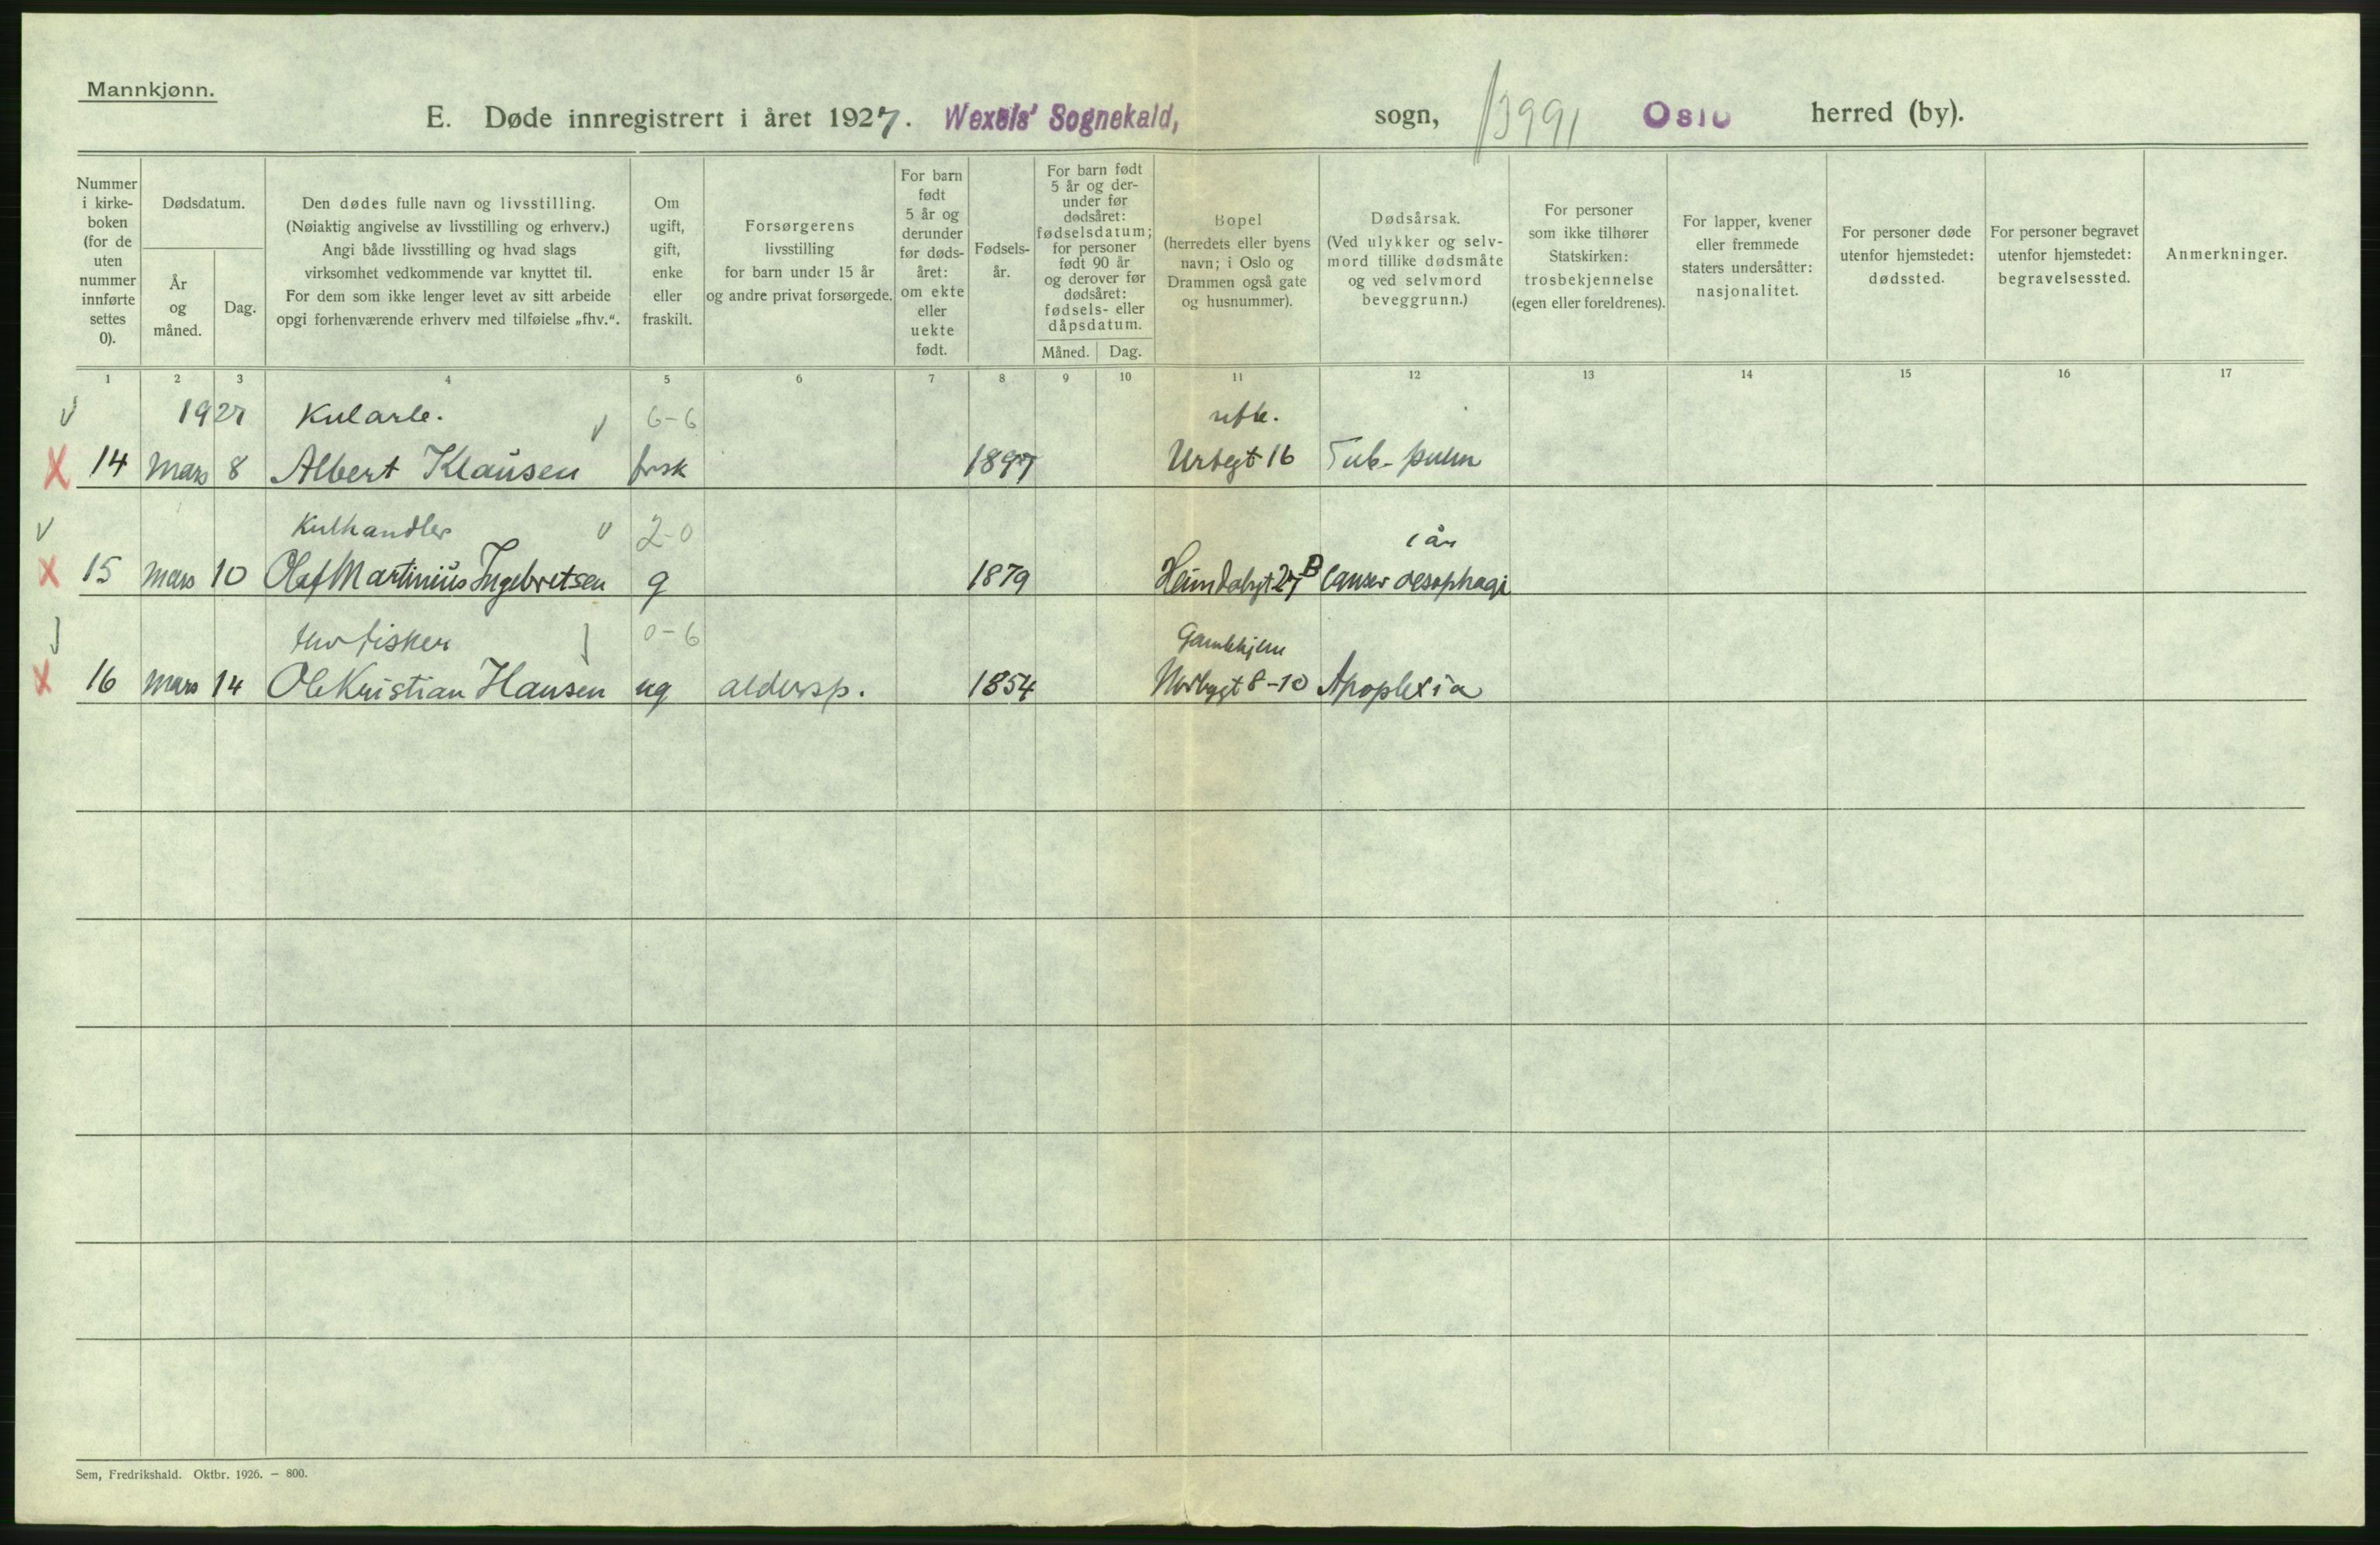 Mannkjønn.
E. Døde innregistrert i året 1927. Wexels' Sognekald, sogn, 13991 Oslo herred (by).
Nummer i kirke-boken (for de uten nummer innførte settes 0).
Dødsdatum.
År og måned.
Dag.
Den dødes fulle navn og livsstilling.
(Nøiaktig angivelse av livsstilling og erhverv.)
Angi både livsstilling og hvad slags
virksomhet vedkommende var knyttet til.
For dem som ikke lenger levet av sitt arbeide
opgi forhenværende erhverv med tilføielse „fhv.“.
Om ugift, gift, enke eller fraskilt.
Forsørgerens
livsstilling
for barn under 15 år
og andre privat forsørgede.
For barn født 5 år og derunder før døds-året: om ekte eller uekte født.
Fødsels-år.
For barn født 5 år og der-under før dødsåret: fødselsdatum; for personer født 90 år og derover før dødsåret: fødsels- eller dåpsdatum.
Måned.
Dag.
Bopel
(herredets eller byens
navn; i Oslo og
Drammen også gate
og husnummer).
Dødsårsak.
(Ved ulykker og selv-
mord tillike dødsmåte
og ved selvmord
beveggrunn.)
For personer
som ikke tilhører
Statskirken:
trosbekjennelse
(egen eller foreldrenes).
For lapper, kvener
eller fremmede
staters undersåtter:
nasjonalitet.
For personer døde
utenfor hjemstedet:
dødssted.
For personer begravet
utenfor hjemstedet:
begravelsessted.
Anmerkninger.
1 2 3 4 5 6 7 8 9 10 11 12 13 14 15 16 17
1927 Kularb. 6-6
14 Mars 8 Albert Klausen frsk 1897 Urtegt 16 Tub. pulm
Kulhandler 2-0 1 år
15 Mars 10 Olaf Martinius Ingebretsen g 1879 Heimdalsgt 27 B Cancer oesophagi
fhv fisker 0-6 Gamlehjem
16 Mars 14 Ole Kristian Hansen ug aldersp. 1854 Norbygt 8-10 Apoplexia
Sem, Fredrikshald. Oktbr. 1926. — 800.